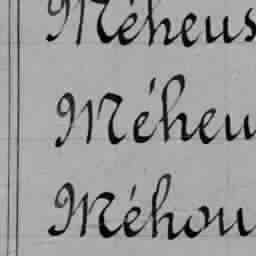 Méheus
Méheu
Méhou